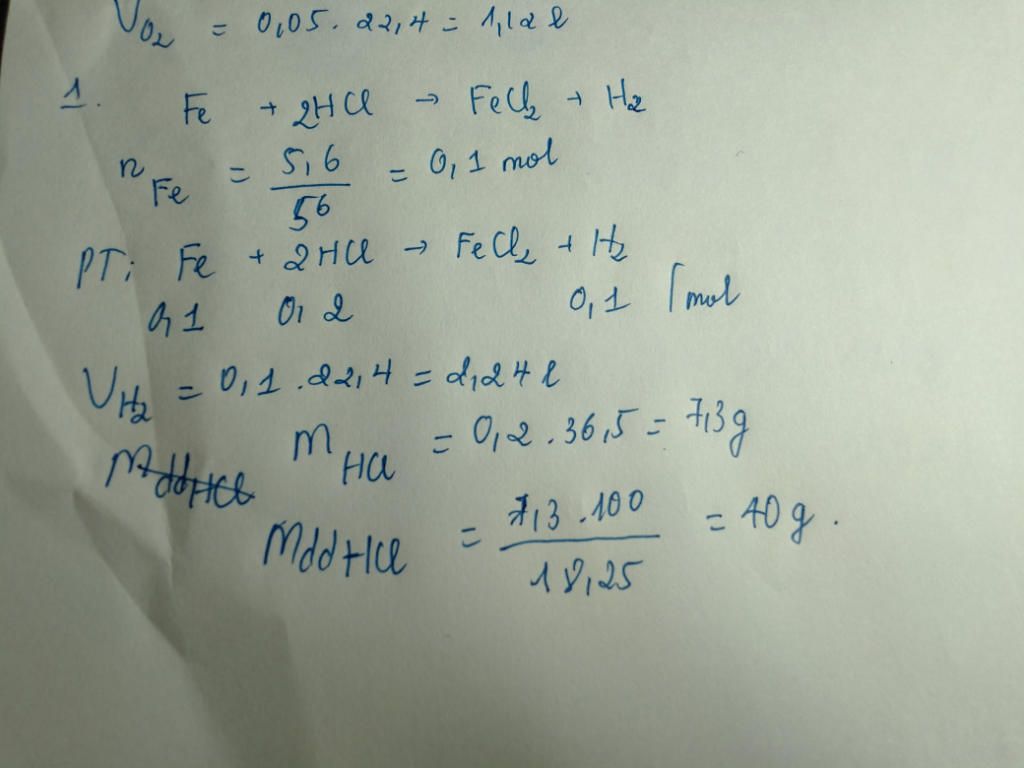 V O2 = 0,05 . 22,4 = 1,12 l
1. Fe + 2HCl → FeCl2 + H2
n Fe = 5,6 / 56 = 0,1 mol
PT: Fe + 2HCl → FeCl2 + H2
0,1 0,2 0,1 [mol
V H2 = 0,1 . 22,4 = 2,24 l
m HCl = 0,2 . 36,5 = 7,3g
mddHCl
mddHCl = 7,3 . 100 / 18,25 = 40g .